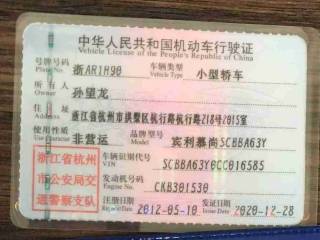 中华人民共和国机动车行驶证
Vehicle License of the People's Republic of China
号牌号码 浙AR1H90 车辆类型 小型轿车
Plate No. Vehicle Type
所有人 孙望龙
Owner
住址 浙江省杭州市拱墅区杭行路杭行路218号2015室
Address
使用性质 非营运 品牌型号 宾利慕尚SCBBA63Y
车辆识别代号 SCBBA63Y0CC016585
VIN
发动机号码 CKB301530
Engine No.
注册日期 2012-05-10 2020-12-28
Register Date
浙江省杭州
市公安局交
通警察支队